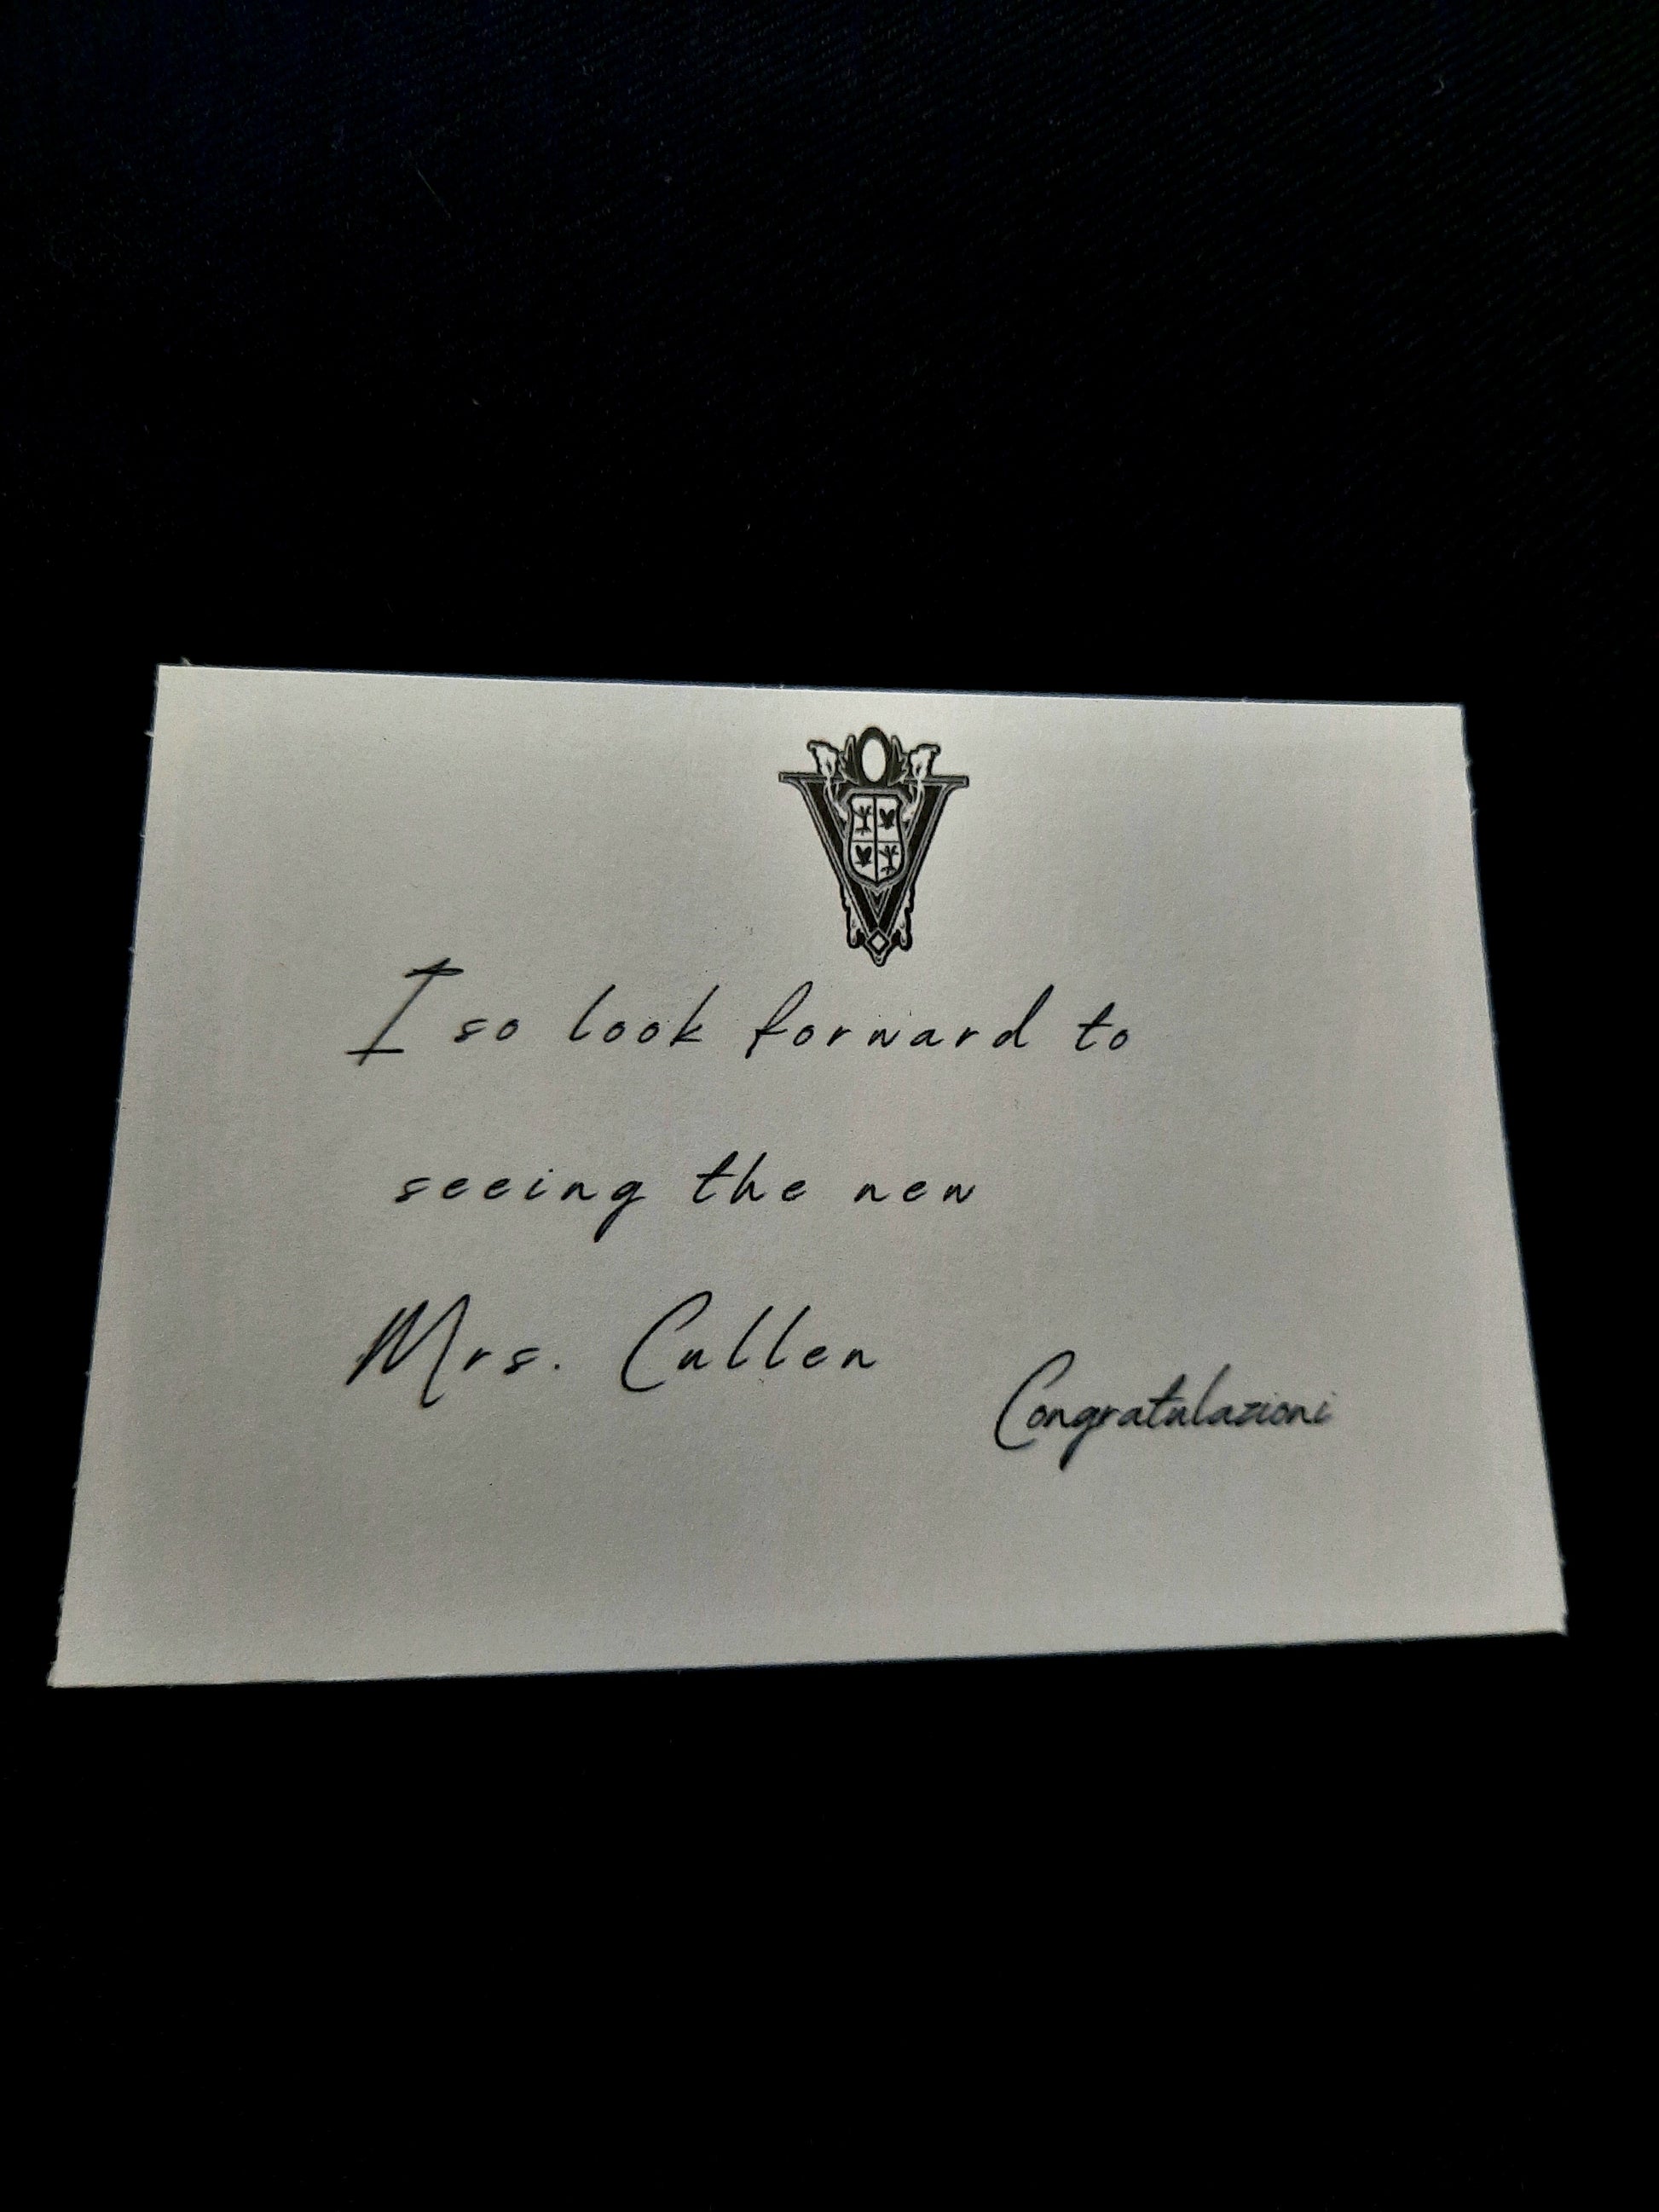 I so look forward to
seeing the new
Mrs. Cullen
Congratulazioni